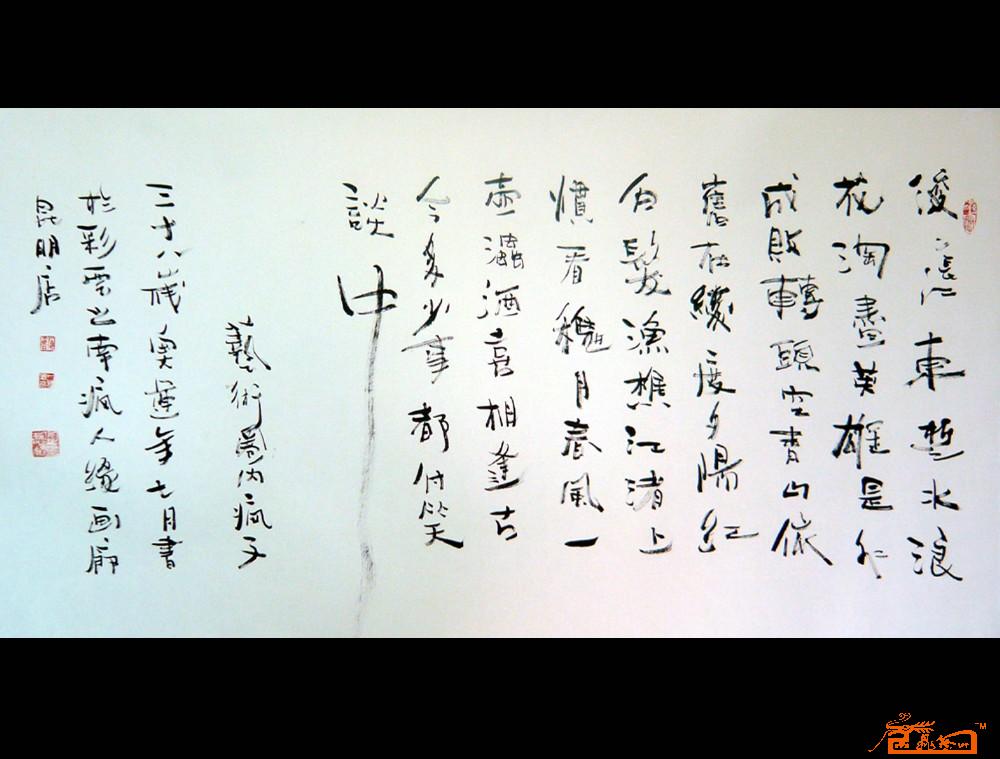 滾滾長江東逝水浪
花淘盡英雄是非
成敗轉頭空青山依
舊在幾度夕陽紅
白髮漁樵江渚上
慣看秋月春風一
壺濁酒喜相逢古
今多少事都付笑
談中
藝術圈內瘋子
三十八歲奧運年七月書
於彩雲之南瘋人緣画廊
昆明店